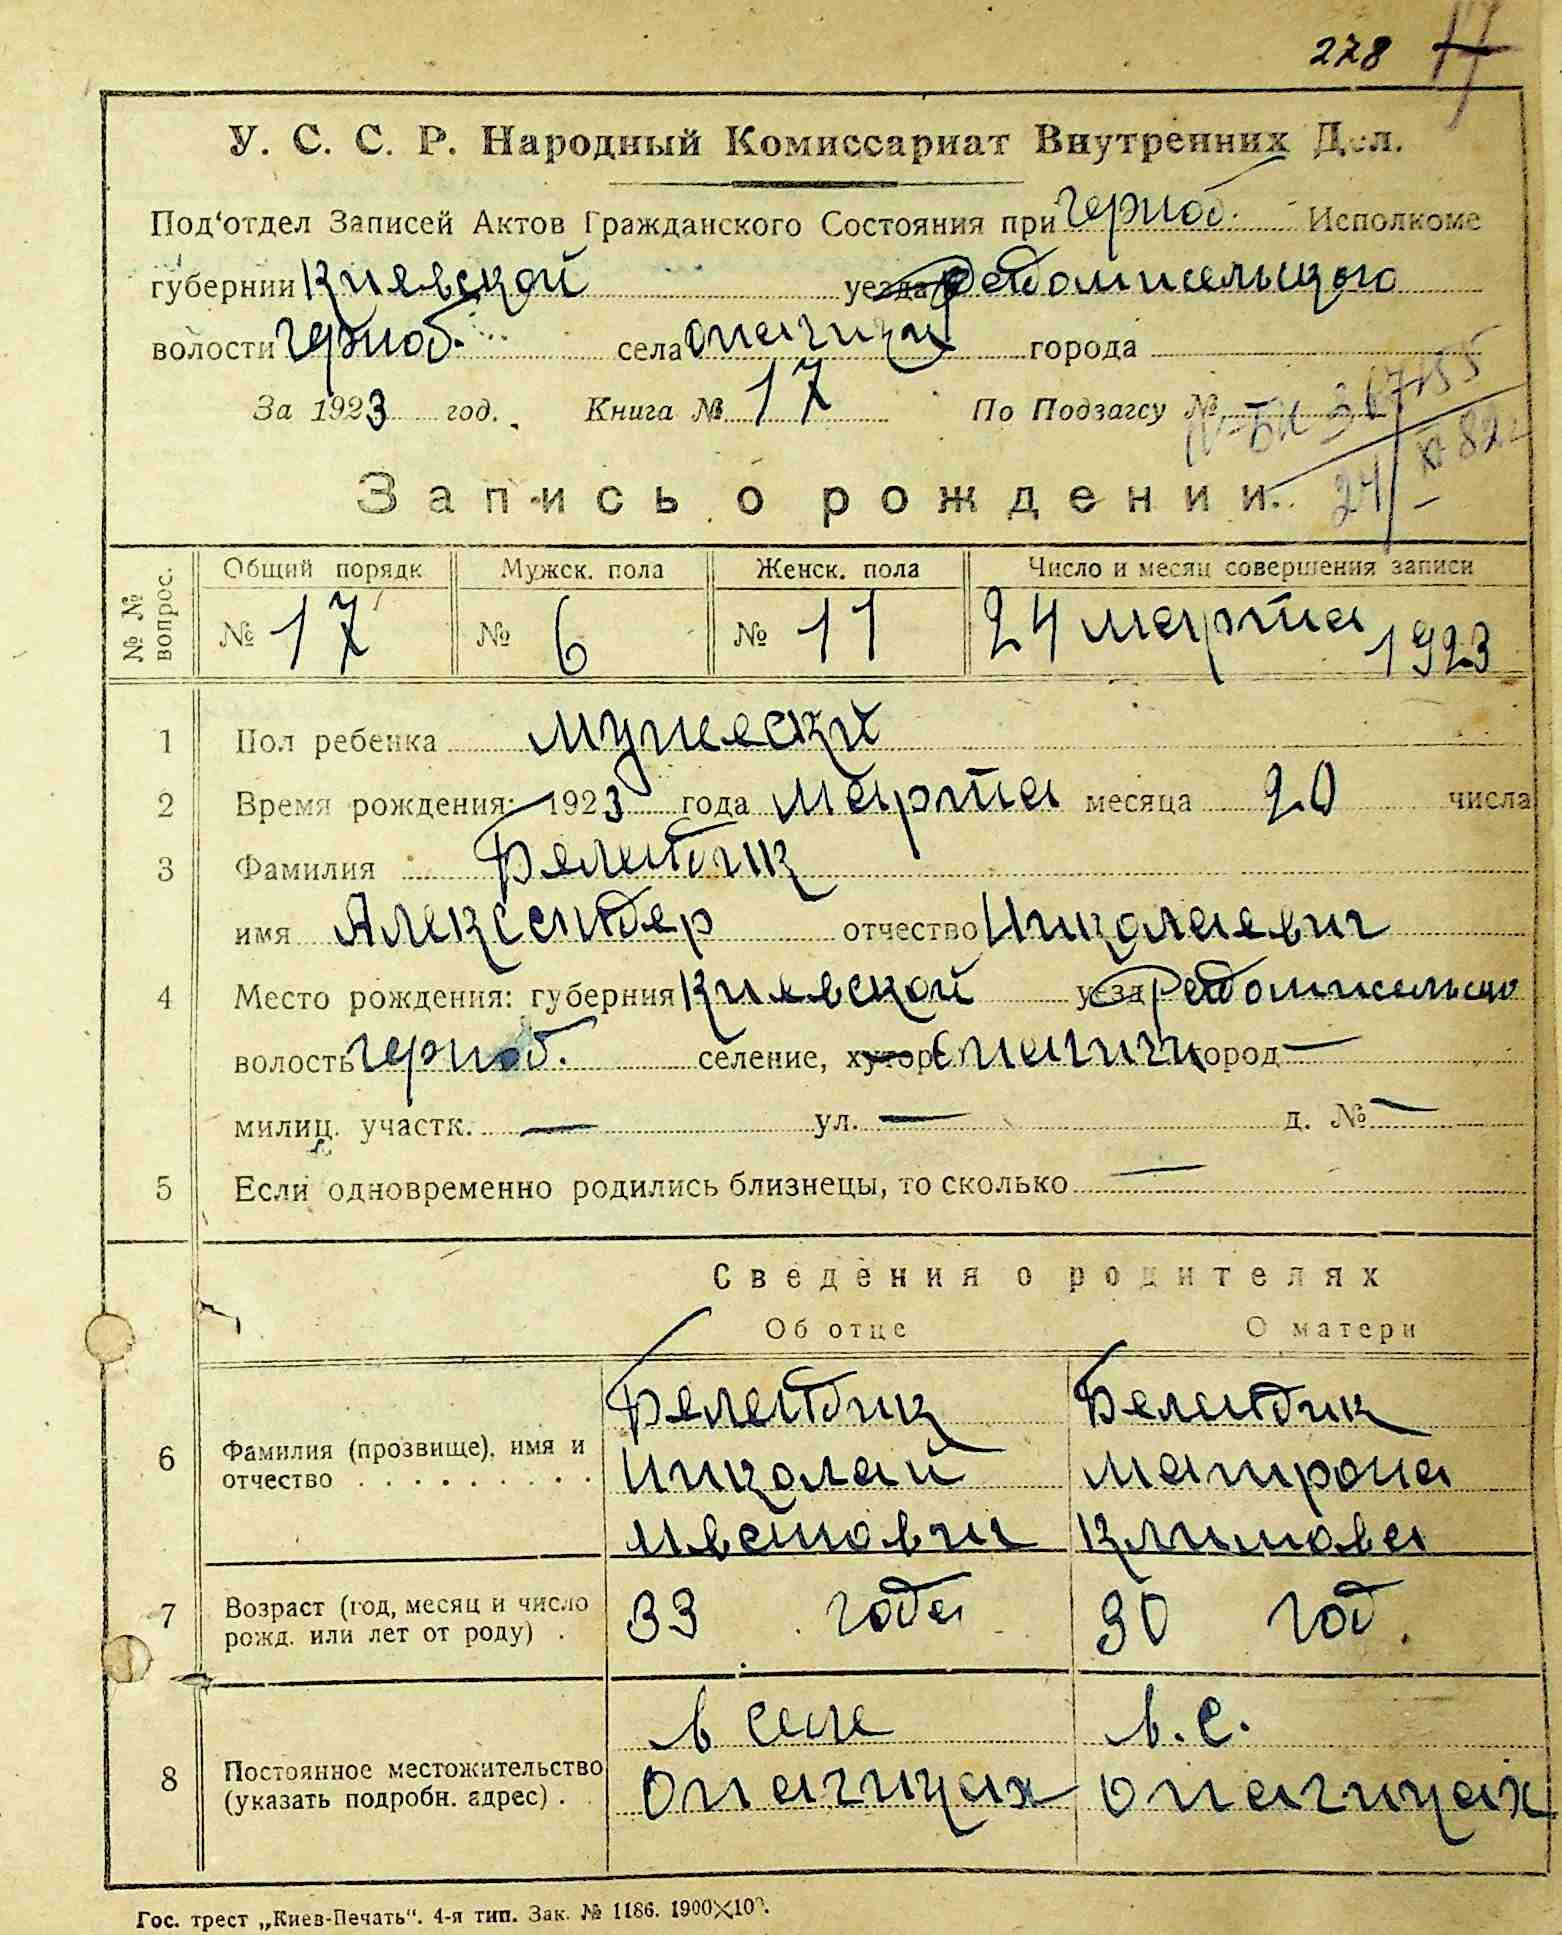 278 17
У. С. С. Р. Народный Комиссариат Внутренних Дел.
Под'отдел Записей Актов Гражданского Состояния при Черноб. Исполкоме
губернии Киевской уезда Радомисельцкого
волости Черноб. села Опачичи города
За 1923 год. Книга № 17 По Подзагсу №
БК 367155
24
Запись о рождении.
№ № вопрос. Общий порядк Мужск. пола Женск. пола Число и месяц совершения записи
№ 17 № 6 № 11 24 марта 1923
1 Пол ребенка мужески
2 Время рождения: 1923 года марта месяца 20 числа
3 Фамилия Белендик
имя Александер отчество Николаевич
4 Место рождения: губерния Киевской уезд Радомисельско
волость Черноб. селение, хутор Опачичи город —
милиц. участк. — ул. — д. № —
5 Если одновременно родились близнецы, то сколько —
Сведения о родителях
Об отце О матери
Белендик Белендик
6 Фамилия (прозвище), имя и отчество Николай Матрона
Иванович Климова
7 Возраст (год, месяц и число рожд. или лет от роду) 33 года 30 год.
в селе в. с.
8 Постоянное местожительство (указать подробн. адрес) Опачицах Опачицах
Гос. трест „Киев-Печать“. 4-я тип. Зак. № 1186. 1900×10².